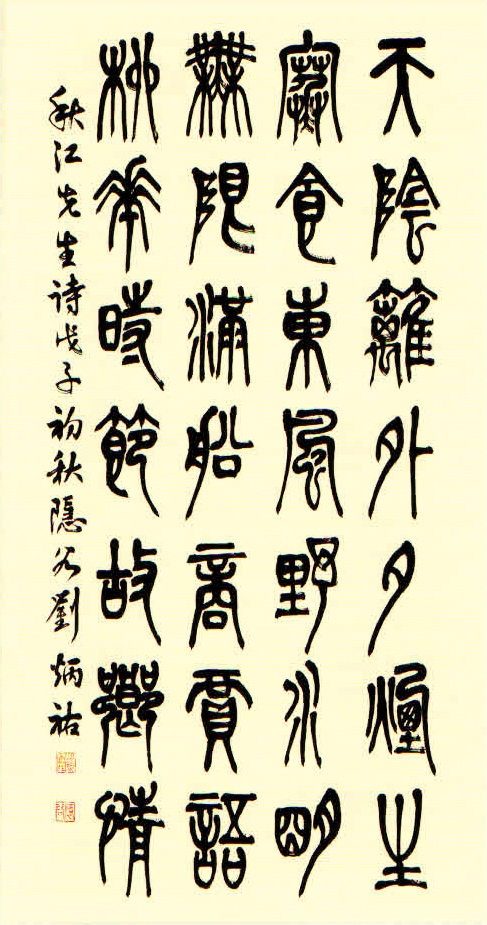 天陰籬外夕煙生
寒食東風野水明
無限滿船商賈語
柳花時節故鄉情
秋江先生詩戊子初秋隱谷劉炳祐